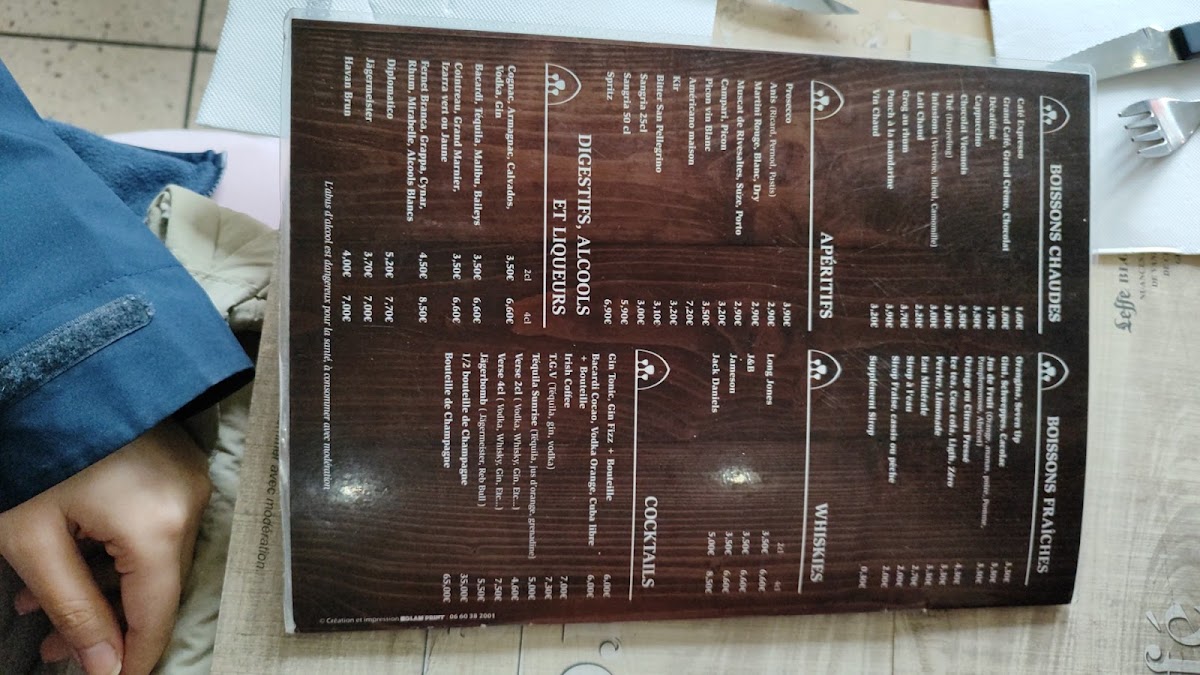 BOISSONS CHAUDES
Café Expresso 1.60€
Grand Café, Grand Crème, Chocolat
Décaféiné 1.70€
Cappuccino
Chocolat Viennois
Thé (Darjeeling)
Infusions (Verveine, tilleul, Camomille)
Lait Chaud 2.20€
Grog au rhum
Punch à la mandarine
Vin Chaud 3.20€
APÉRITIFS
Prosecco 3,90€
Anis (Ricard, Pernod, Pastis) 2,90€
Martini Rouge, Blanc, Dry 2,90€
Muscat de Rivesaltes, Suze, Porto 2,90€
Campari, Picon 3,20€
Picon vin Blanc 3,50€
Américano maison 7,20€
Kir 3,20€
Bitter San Pellegrino 3,10€
Sangria 25cl 3,00€
Sangria 50 cl 5,90€
Spritz 6,90€
DIGESTIFS, ALCOOLS
ET LIQUEURS
2cl 4cl
Cognac, Armagnac, Calvados,
Vodka, Gin 3,50€ 6,60€
Bacardi, Téquila, Malibu, Baileys 3,50€ 6,60€
Cointreau, Grand Marnier,
Izarra vert ou Jaune 3,50€ 6,60€
Fernet Branca, Grappa, Cynar,
Rhum, Mirabelle, Alcools Blancs 4,50€ 8,50€
Diplomatico 5,20€ 7,70€
Jägermeister 3,70€ 7,00€
Havan Brun 4,00€ 7,00€
BOISSONS FRAÎCHES
Orangina, Seven Up
Gini, Schweppes, Cacolac
Jus de Fruit (Orange, ananas, poire, Pomme,
Pamplemousse, Abricot)
Orange ou Citron Pressé
Ice tea, Coca cola, Light, Zéro
Perrier, Limonade
Eau Minérale
Sirop à l'eau
Sirop Fraise, cassis ou pêche
Supplément Sirop
WHISKIES
2cl 4cl
Long Jones 3,50€ 6,60€
J&B 3,50€ 6,60€
Jameson 3,50€ 6,60€
Jack Daniels 5,00€ 8,50€
COCKTAILS
Gin Tonic, Gin Fizz + Bouteille 6,00€
Bacardi Cocao, Vodka Orange, Cuba libre
+ Bouteille 6,00€
Irish Coffee 7,00€
T.G.V (Téquila, gin, vodka) 7,30€
Téquila Sunrise (Téquila, jus d'orange, grenadine) 5,00€
Verse 2cl ( Vodka, Whisky, Gin, Etc...) 4,60€
Verse 4cl ( Vodka, Whisky, Gin, Etc...) 7,50€
Jägerbomb ( Jägermeister, Reb Bull ) 5,50€
1/2 bouteille de Champagne 35,00€
Bouteille de Champagne 65,00€
L'abus d'alcool est dangereux pour la santé, à consommer avec modération
© Création et impression 06 60 38 2001
avec modération